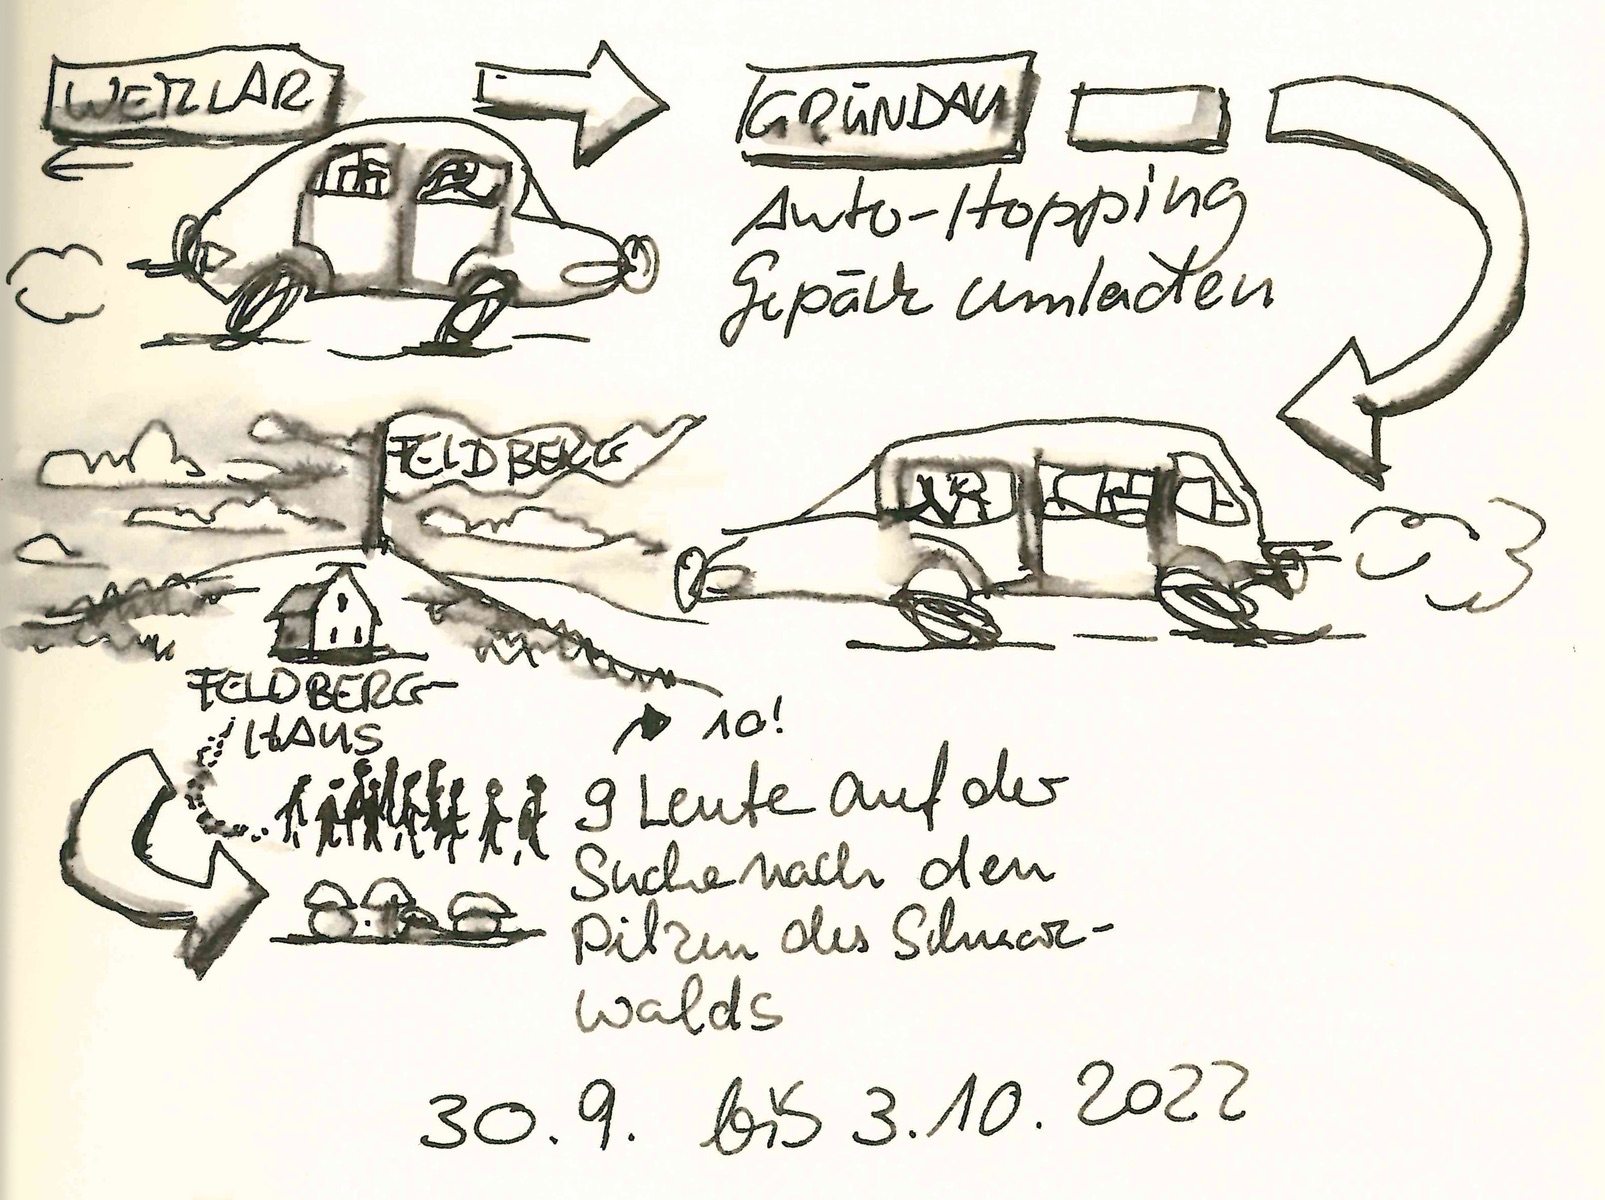 WETZLAR
GRÜNDAU
Auto-Hopping
Gepäck umladen
FELDBERG
FELDBERG-
HAUS
10!
9 Leute auf der
Suche nach den
Pilzen des Schwarz-
walds
30.9. bis 3.10.2022